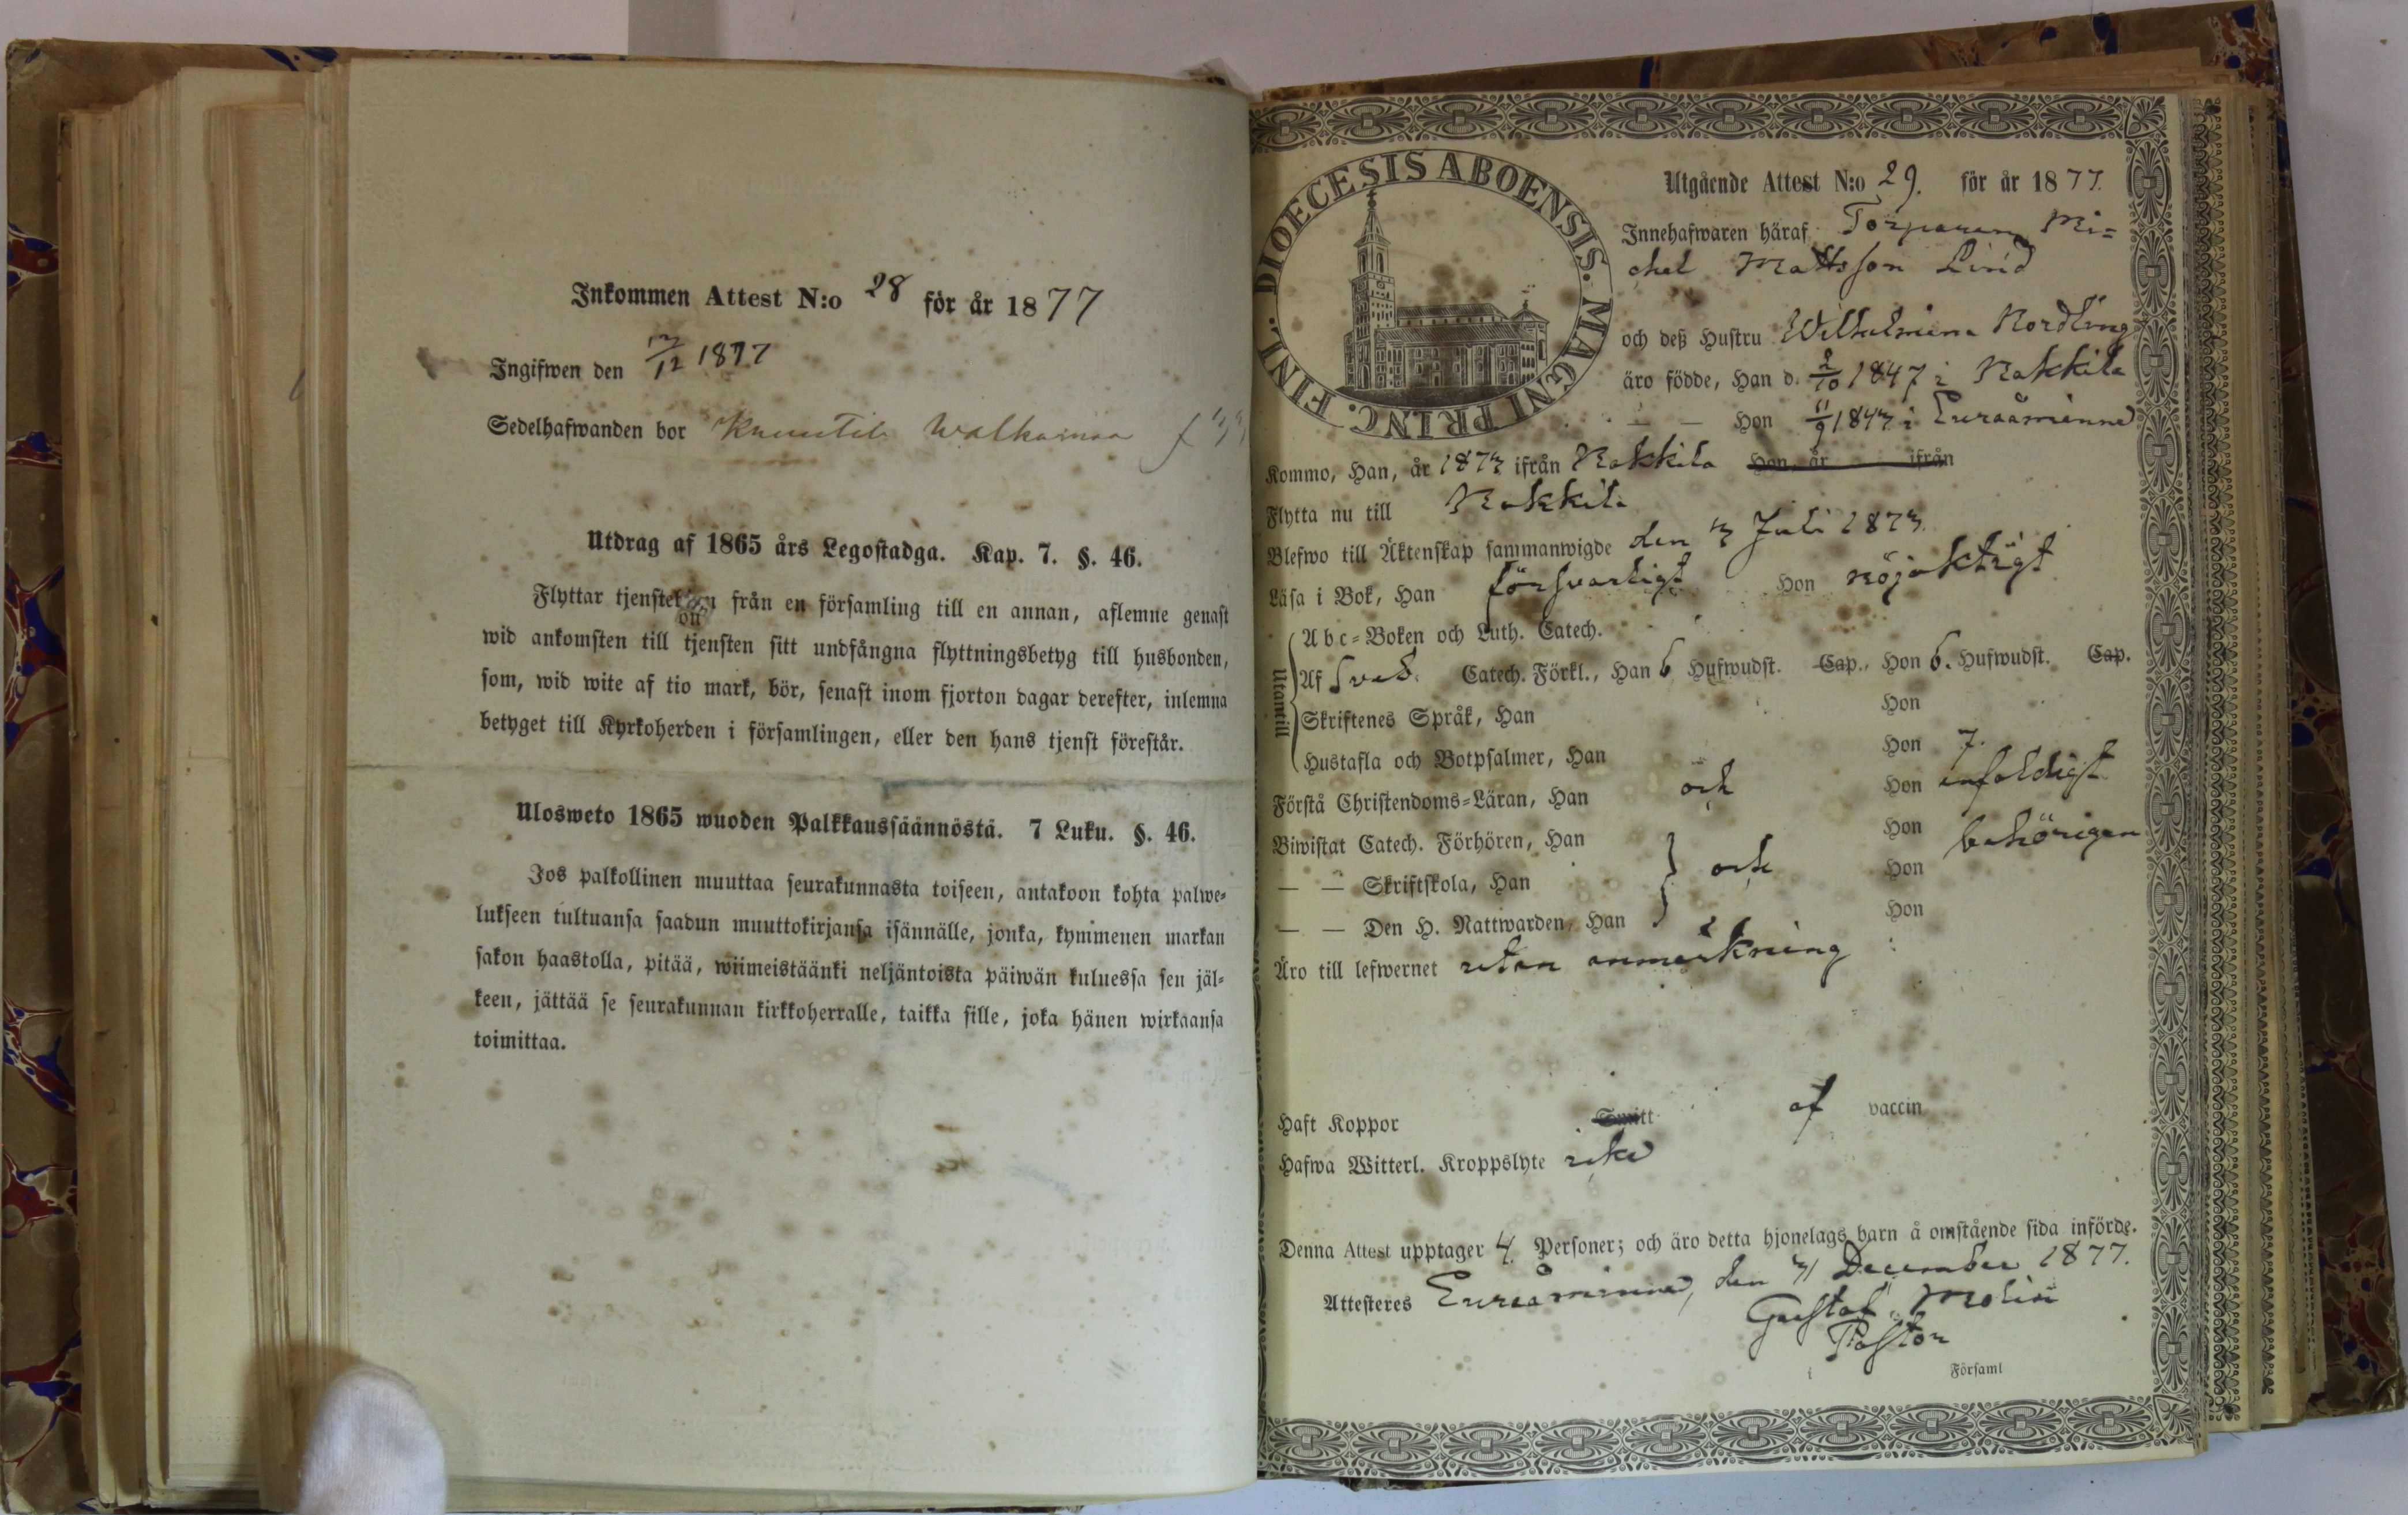 Inkommen Attest N:o 28 för år 1877
Ingifwen den 1877
Sedelhafwanden bor
Utdrag af 1865 års Legostadga. Kap. 7. §. 46.
Flyttar från en församling till en annan, aflemne genast
wid ankomsten till tjensten sitt undfångna flyttningsbetyg till husbonden,
som, wid wite af tio mark, bör, senast inom fjorton dagar derefter, inlemna
betyget till Kyrkoherden i församlingen, eller den hans tjenst förestår.
Ulosweto 1865 wuoden Palkkaussäännöstä. 7 Luku. §. 46.
Jos palkollinen muuttaa seurakunnasta toiseen, antakoon kohta palwe=
lukseen tultuansa saadun muuttokirjansa isännälle, jonka, kymmenen markan
sakon haastolla, pitää, wiimeistäänki neljäntoista päiwän kuluessa sen jäl=
keen, jättää se seurakunnan kirkkoherralle, taikka sille, joka hänen wirkaansa
toimittaa.
DIOECESIS ABOENSIS. MAGNI PRINC. FINL.
Utgående Attest N:o 29. för år 1877.
Innehafwaren häraf Torparen Mi=
chel Mattsson Lind
och deß Hustru Wilhelmina Nordling
äro födde, Han d. 2/10 1847 i Nakkila
— — Hon 11/9 1843 i Euraåminne
Kommo, Han, år 1873 ifrån Nakkila Hon, år ifrån
Flytta nu till Nakkila
Blefwo till Äktenskap sammanwigde den 3 Juli 1873.
Läsa i Bok, Han försvarligt Hon nöjaktigt
Utantill
Abc=Boken och Luth. Catech.
Af Sveb. Catech. Förkl., Han 6 Hufwudst. Cap., Hon 6. Hufwudst. Cap.
Skriftenes Språk, Han Hon
Hustafla och Botpsalmer, Han Hon 7.
Förstå Christendoms=Läran, Han och Hon enfaldigt
Biwistat Catech. Förhören, Han Hon behörigen
— — Skriftskola, Han och Hon
— — Den H. Nattwarden, Han Hon
Äro till lefwernet utan anmärkning
Haft Koppor Smitt af vaccin
Hafwa Witterl. Kroppslyte icke
Denna Attest upptager 4 Personer; och äro detta hjonelags barn å omstående sida införde.
Attesteres Euraåminne, den December 1877.
Gustaf Molin
Pastor
i Församl